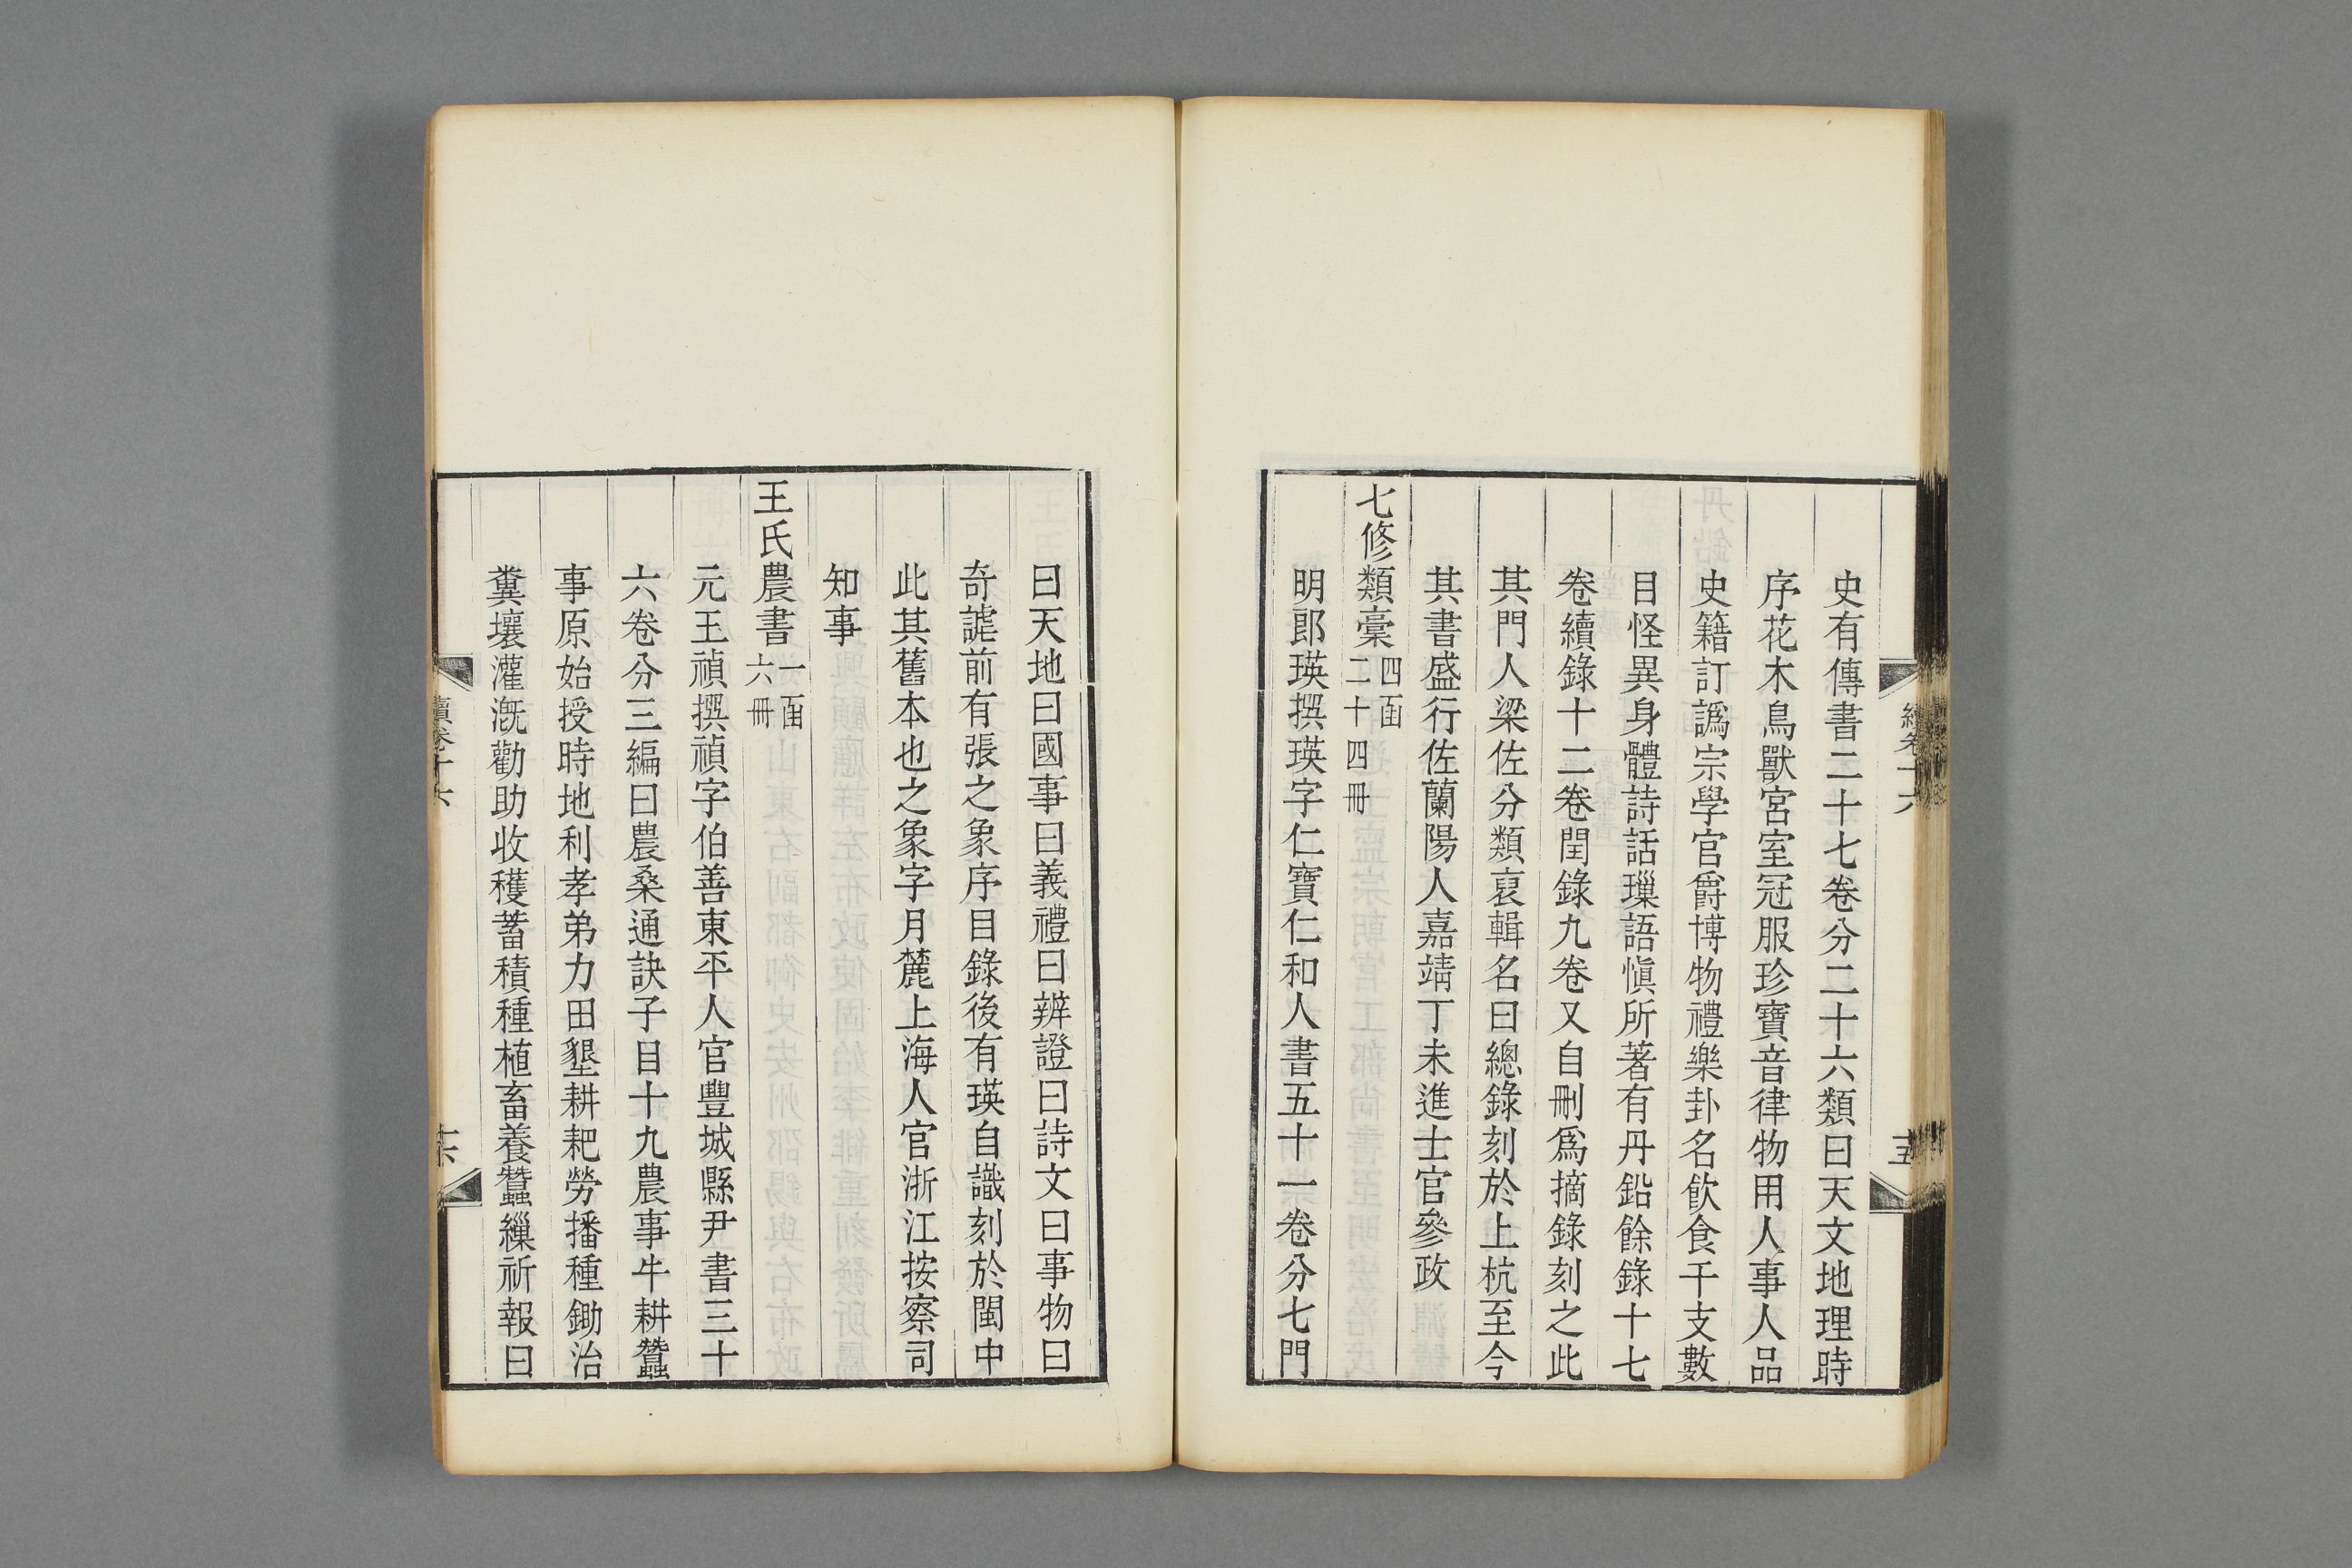 史有傳書二十七卷分二十六類曰天文地理時
序花木鳥獸宮室冠服珍寶音律物用人事人品
史籍訂譌宗學官爵博物禮樂卦名飲食干支數
目怪異身體詩話璅語愼所著有丹鉛餘錄十七
卷續錄十二卷閏錄九卷又自刪爲摘錄刻之此
其門人梁佐分類裒輯名曰總錄刻於上杭至今
其書盛行佐蘭陽人嘉靖丁未進士官參政
七修類稾 四函
二十四冊
明郎瑛撰瑛字仁寶仁和人書五十一卷分七門
十五
曰天地曰國事曰義禮曰辨證曰詩文曰事物曰
奇謔前有張之象序目錄後有瑛自識刻於閩中
此其舊本也之象字月麓上海人官浙江按察司
知事
王氏農書 一函
六冊
元王禎撰禎字伯善東平人官豐城縣尹書三十
六卷分三編曰農桑通訣子目十九農事牛耕蠶
事原始授時地利孝弟力田墾耕耙勞播種鋤治
糞壤灌漑勸助收穫蓄積種植畜養蠶繅祈報曰
續卷十六
十六